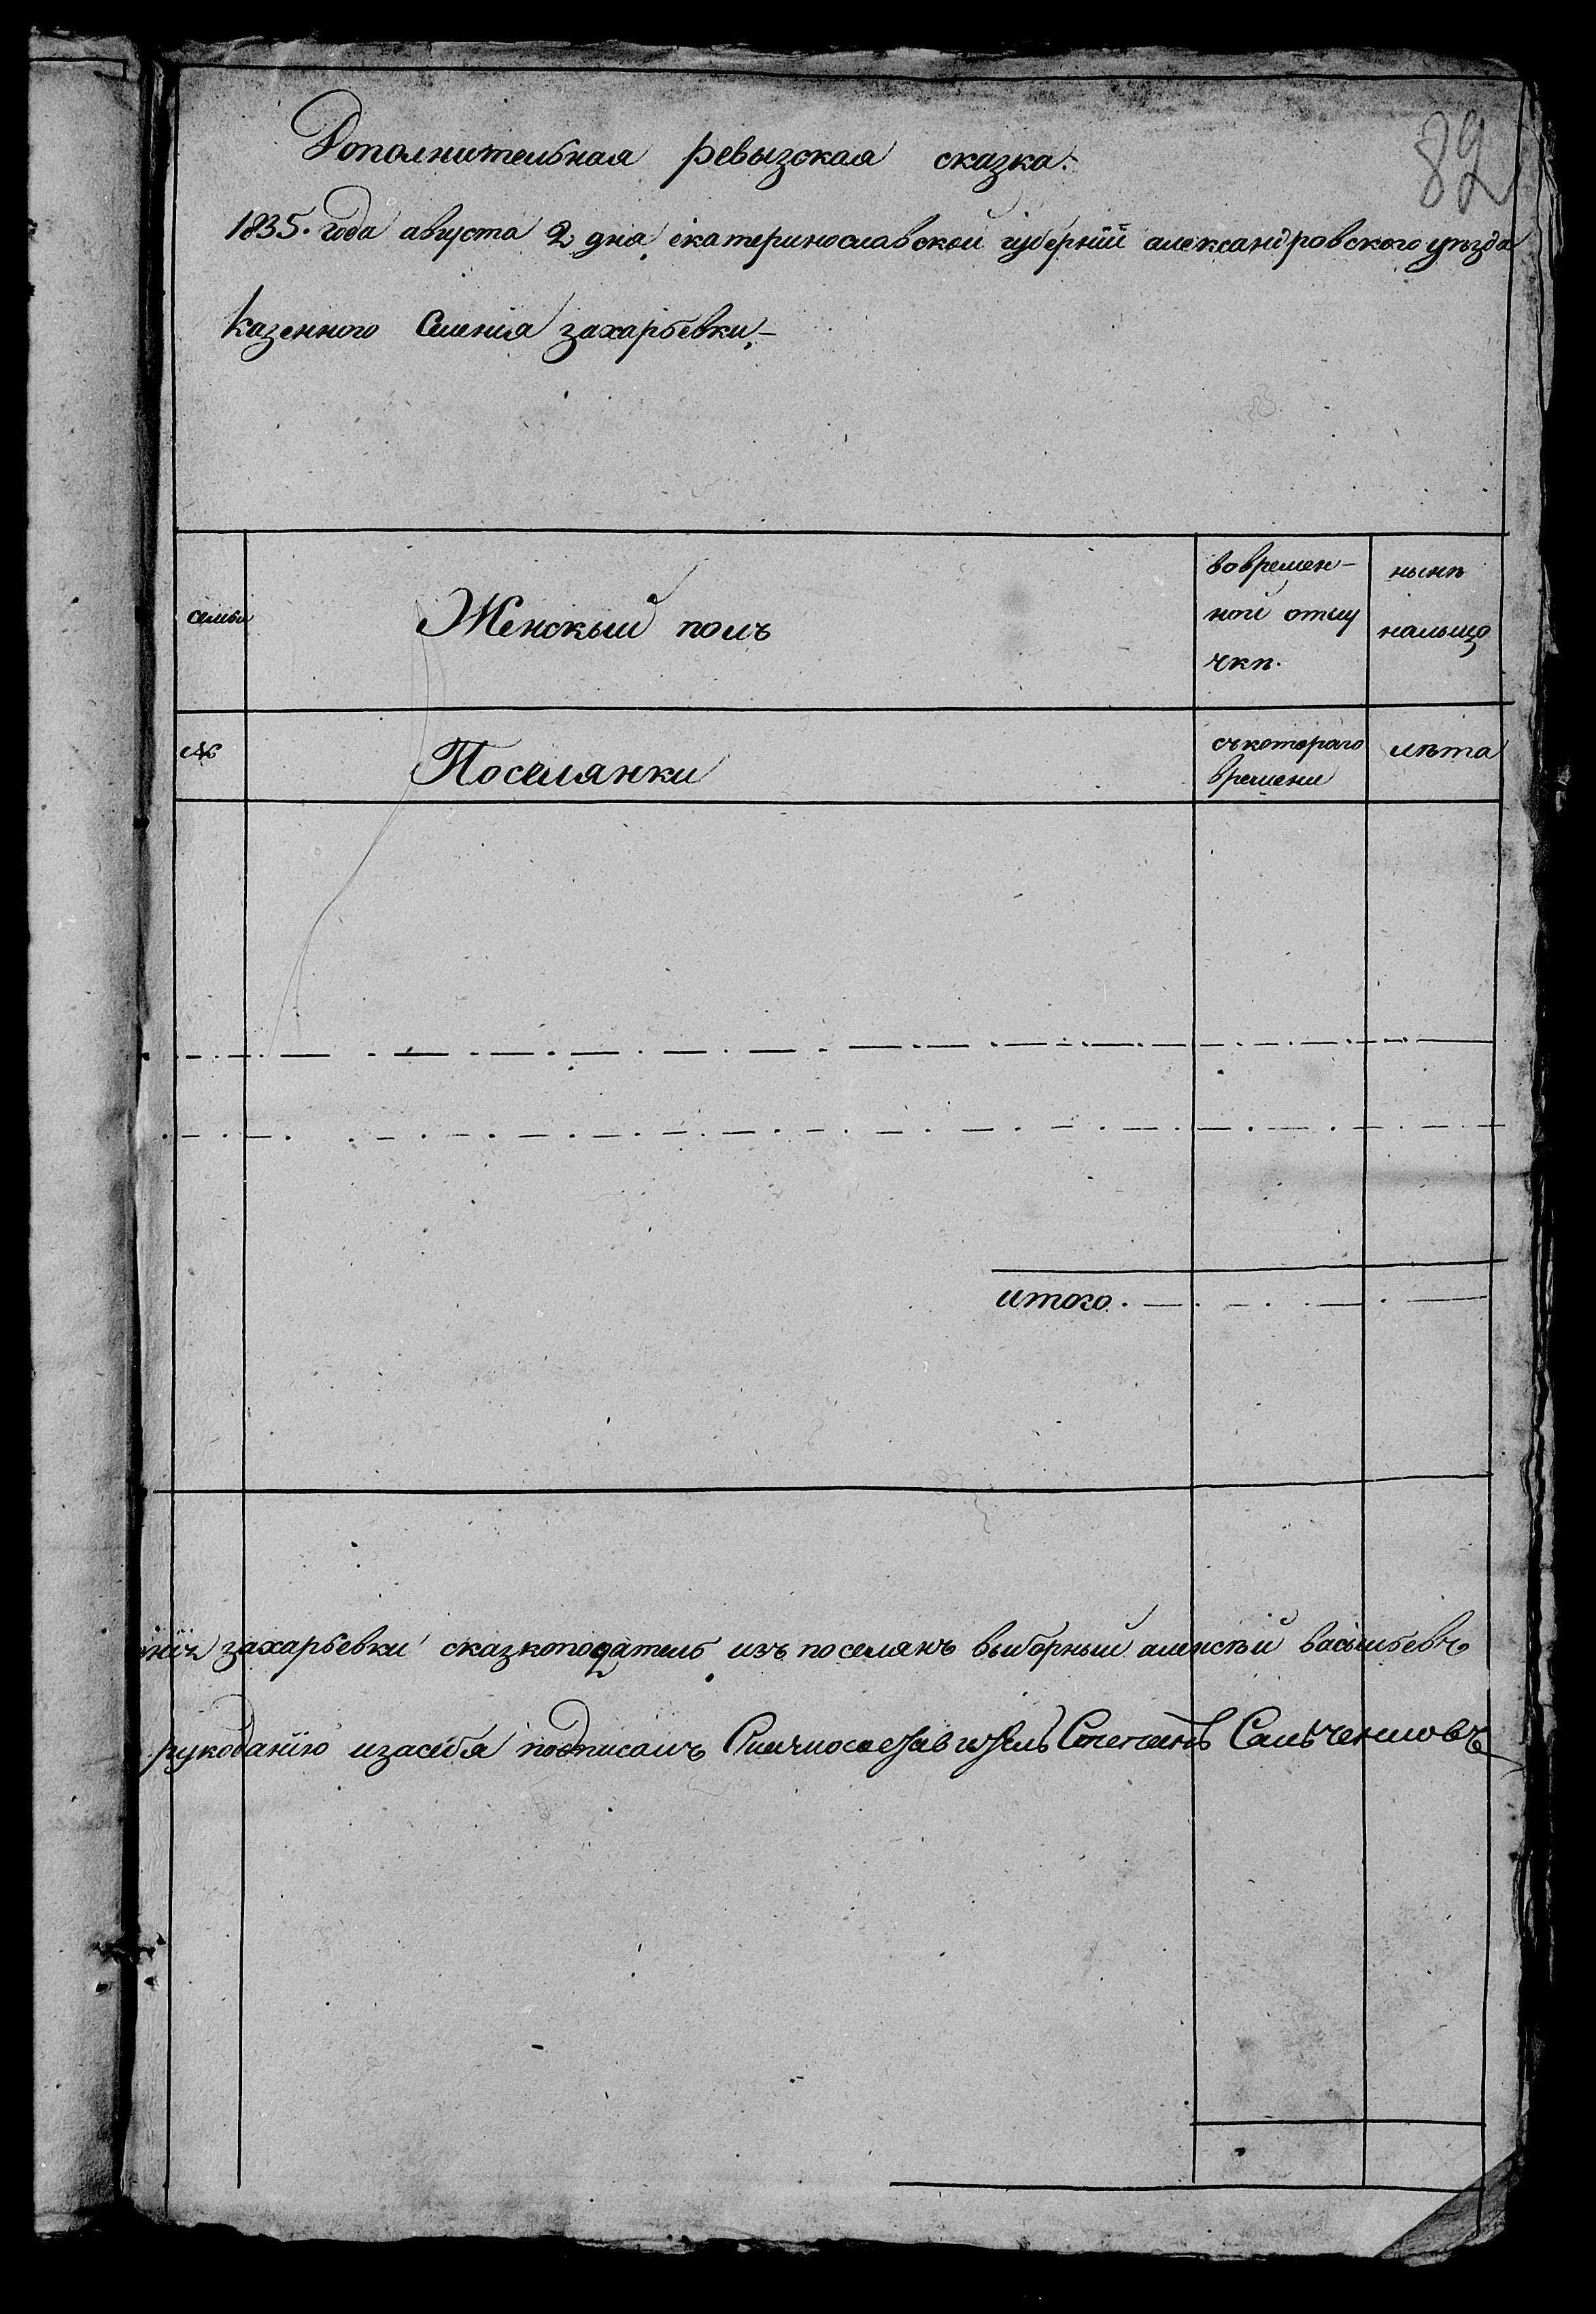 82
Дополнительная ревызская сказка:
1835. года августа 2 дня екатеринославской губерніи александровского уезда
казенного Селенія захарьевки,-
семьи
Женскый полъ
вовремен-
ной отлу
чкп.
нынѣ
налыцо
№
Поселянки
съкотораго
времени
лѣта
итого.
захарьевки сказкоподатель изъ поселянъ выборный алексѣй васыльевъ
рукоданію изасебя подписалъ Степанъ